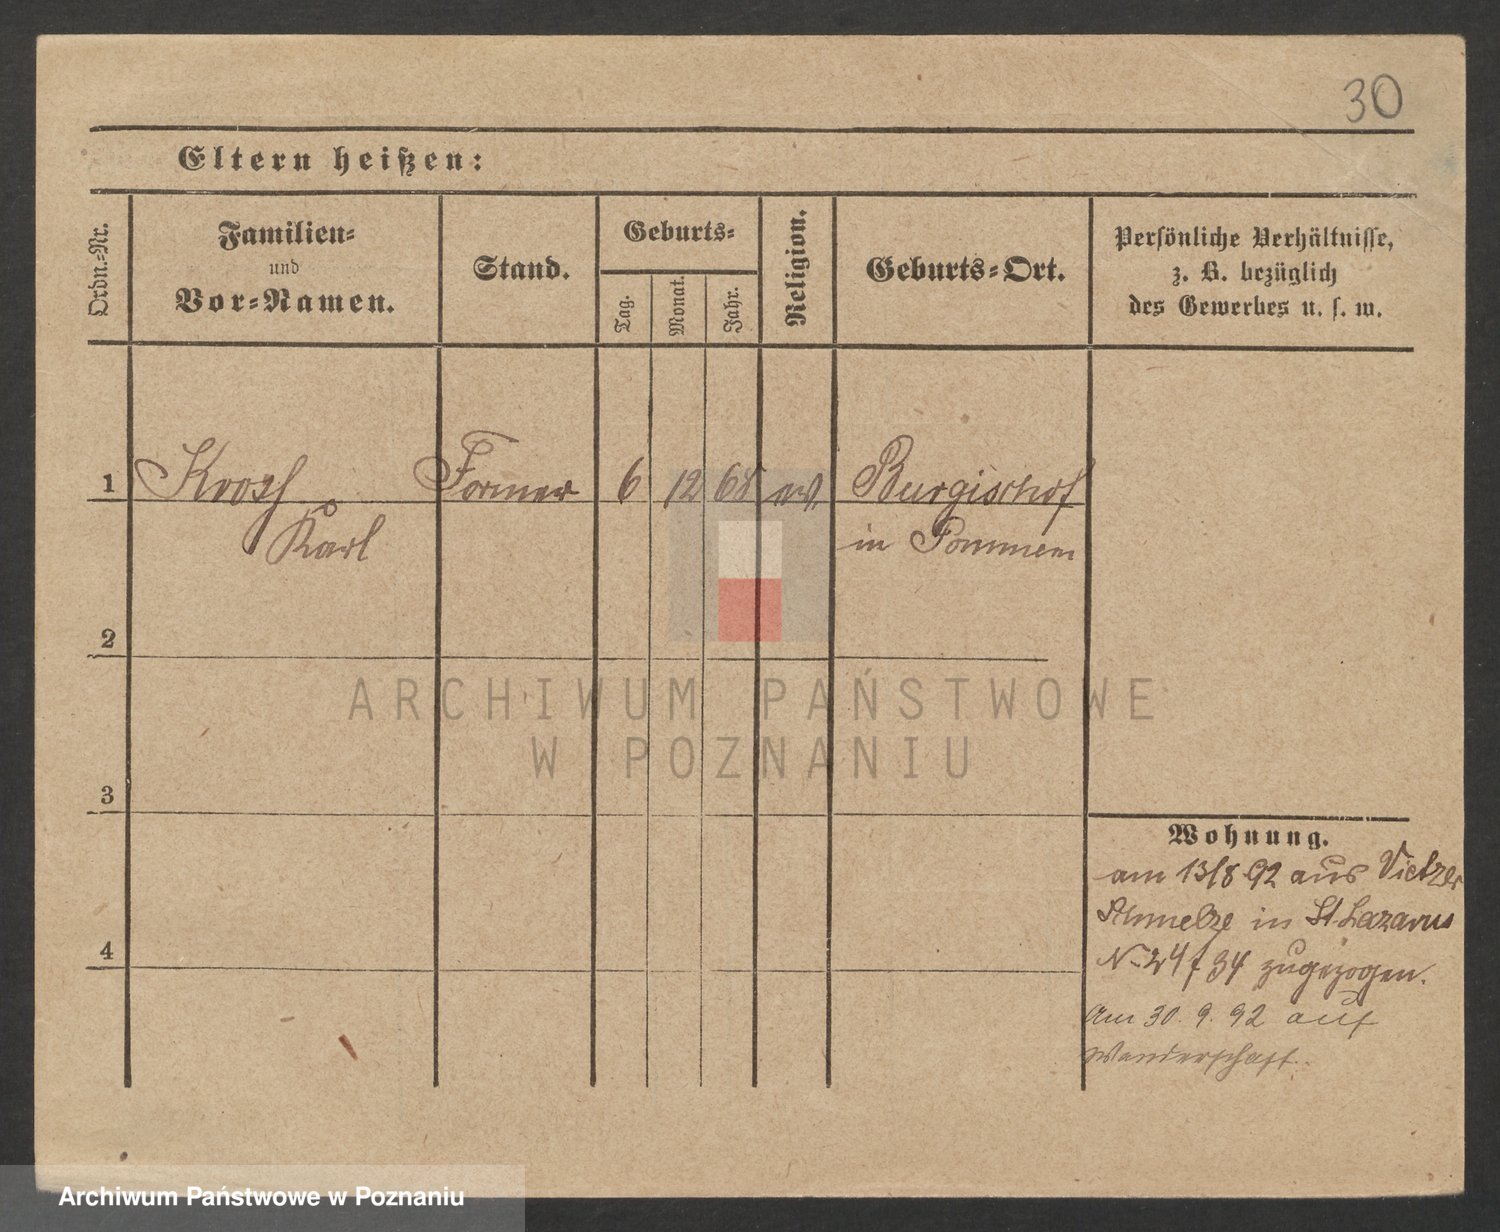 30
Eltern heißen:
Ordn.-Nr.
Familien-
und
Vor-Namen.
Stand.
Geburts-
Tag.
Monat.
Jahr.
Religion.
Geburts-Ort.
Persönliche Verhältnisse,
z. B. bezüglich
des Gewerbes u. s. w.
1 Former 6 12 68 ev. Burgischof
Karl in Pommern
2
ARCHIWUM PAŃSTWOWE
W POZNANIU
3
Wohnung.
am 13/8 92 aus Vietzer
in St. Lazarus
zugezogen.
4
Am 30. 9. 92 auf
Wanderschaft.
Archiwum Państwowe w Poznaniu